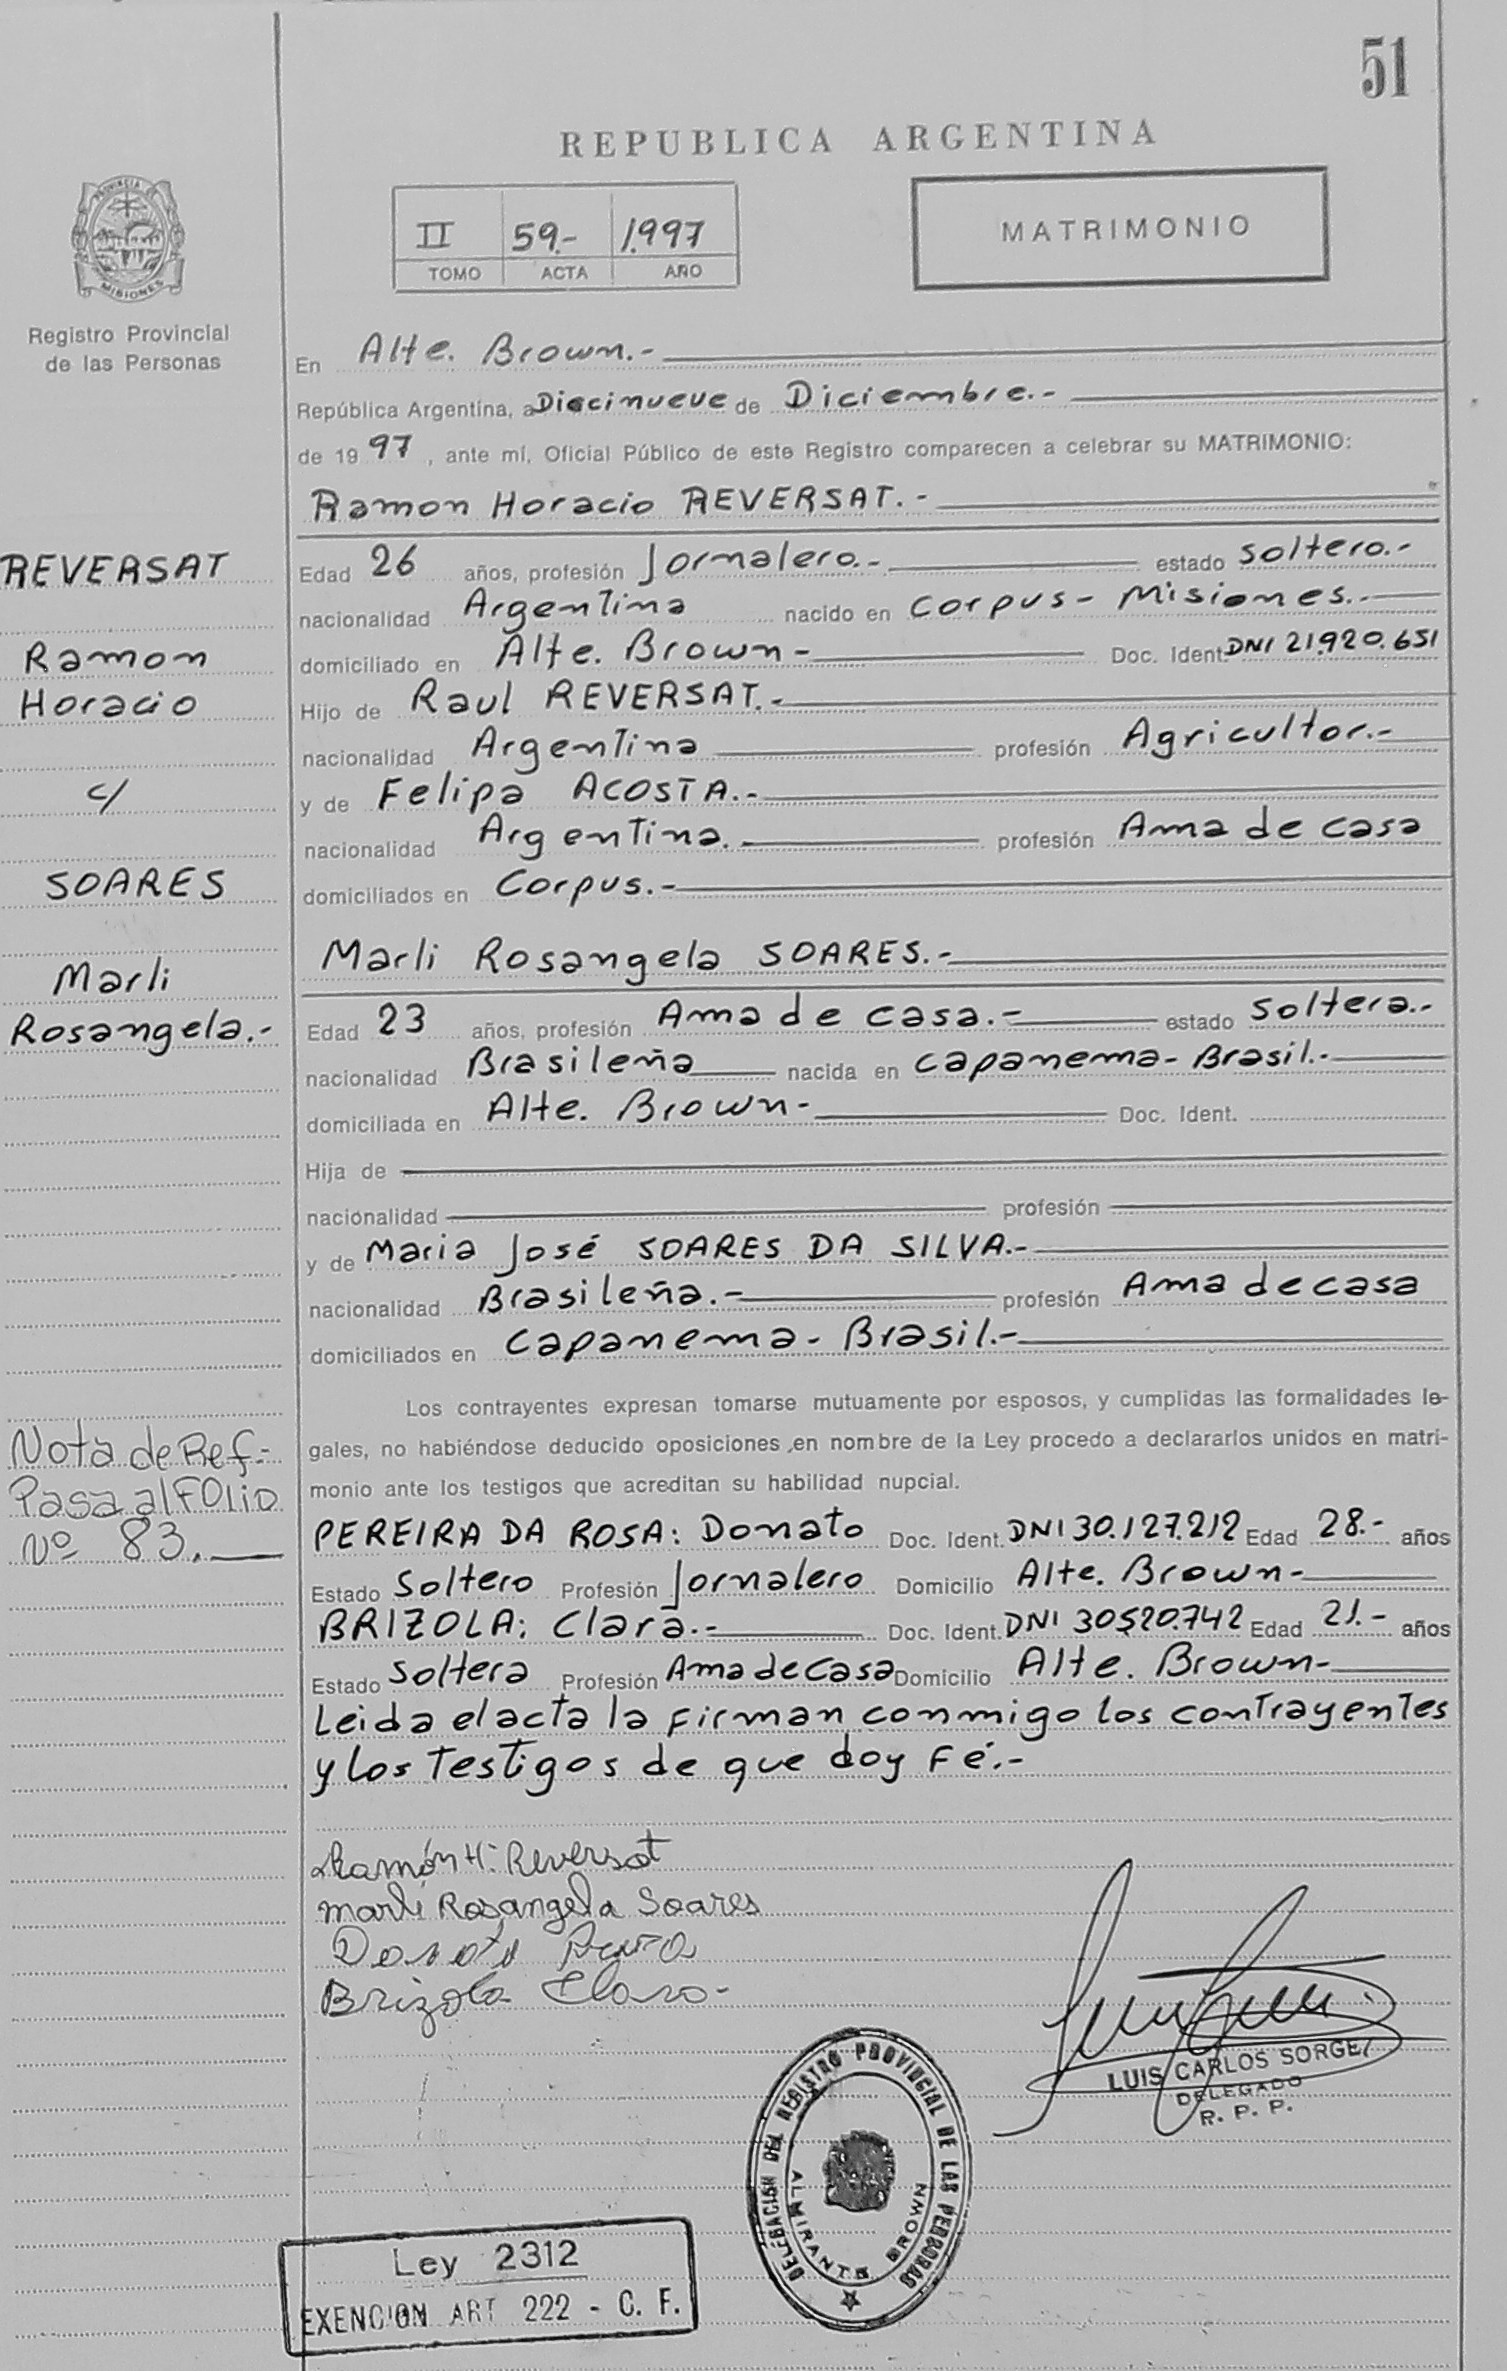 51
REPUBLICA ARGENTINA
PROVINCIA DE
MISIONES
Registro Provincial
de las Personas
II 59.- 1.997
TOMO ACTA AÑO
MATRIMONIO
En Alte. Brown.-
República Argentina, a Diecinueve de Diciembre.-
de 19 97, ante mí, Oficial Público de este Registro comparecen a celebrar su MATRIMONIO:
Ramon Horacio REVERSAT.-
REVERSAT
Ramon
Horacio
c/
SOARES
Marli
Rosangela.-
Edad 26 años, profesión Jornalero.- estado Soltero.-
nacionalidad Argentina nacido en Corpus- Misiones.-
domiciliado en Alte. Brown- Doc. Ident. DNI 21.920.651
Hijo de Raul REVERSAT.-
nacionalidad Argentina profesión Agricultor.-
y de Felipa ACOSTA.-
nacionalidad Argentina. profesión Ama de casa
domiciliados en Corpus.-
Marli Rosangela SOARES.-
Edad 23 años, profesión Ama de casa.- estado Soltera.-
nacionalidad Brasileña nacida en Capanema- Brasil.-
domiciliada en Alte. Brown- Doc. Ident.
Hija de
nacionalidad profesión
y de Maria José SOARES DA SILVA.-
nacionalidad Brasileña.- profesión Ama de casa
domiciliados en Capanema- Brasil.-
Los contrayentes expresan tomarse mutuamente por esposos, y cumplidas las formalidades le-
gales, no habiéndose deducido oposiciones ,en nombre de la Ley procedo a declararlos unidos en matri-
monio ante los testigos que acreditan su habilidad nupcial.
Nota de Ref.-
Pasa al FOlio
Nº 83.
PEREIRA DA ROSA: Donato Doc. Ident. DNI 30.127.212 Edad 28.- años
Estado Soltero Profesión Jornalero Domicilio Alte. Brown-
BRIZOLA: Clara.- Doc. Ident. DNI 30.520.742 Edad 21.- años
Estado Soltera Profesión Ama de Casa Domicilio Alte. Brown-
Leida el acta la firman conmigo los contrayentes
y los Testigos de que doy Fé.-
Ramón H. Reversat
Marli Rosangela Soares
Donato
Brizola Clara-
LUIS CARLOS SORGE
DELEGADO
R. P. P.
DELEGACION DEL REGISTRO PROVINCIAL DE LAS PERSONAS
ALMIRANTE BROWN
Ley 2312
EXENCION ART 222 - C. F.